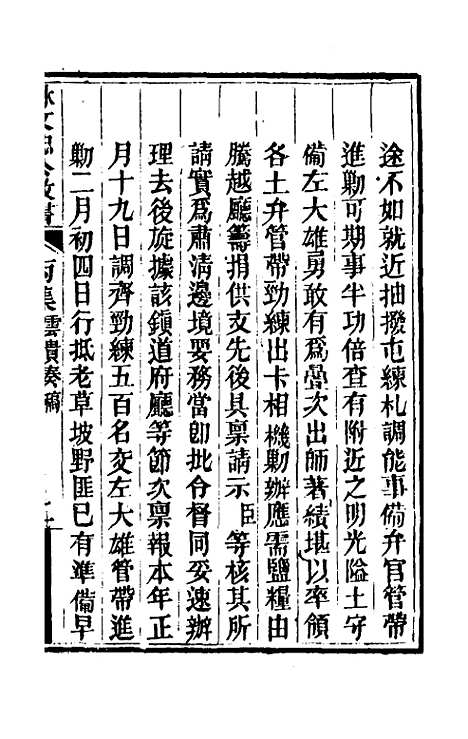 途不如就近抽撥屯練札調能事備弁官管帶
進勦可期事半功倍查有附近之明光隘土守
備左大雄勇敢有爲屢次出師著績堪以率領
各土弁管帶勁練出卡相機勦辦應需鹽糧由
騰越廳籌捐供支先後具稟請示臣等核其所
請實爲肅淸邊境要務當卽批令督同妥速辦
理去後旋據該鎭道府廳等節次稟報本年正
月十九日調齊勁練五百名交左大雄管帶進
勦二月初四日行抵老草坡野匪已有準備早
林文忠公政書 丙集雲貴奏稿